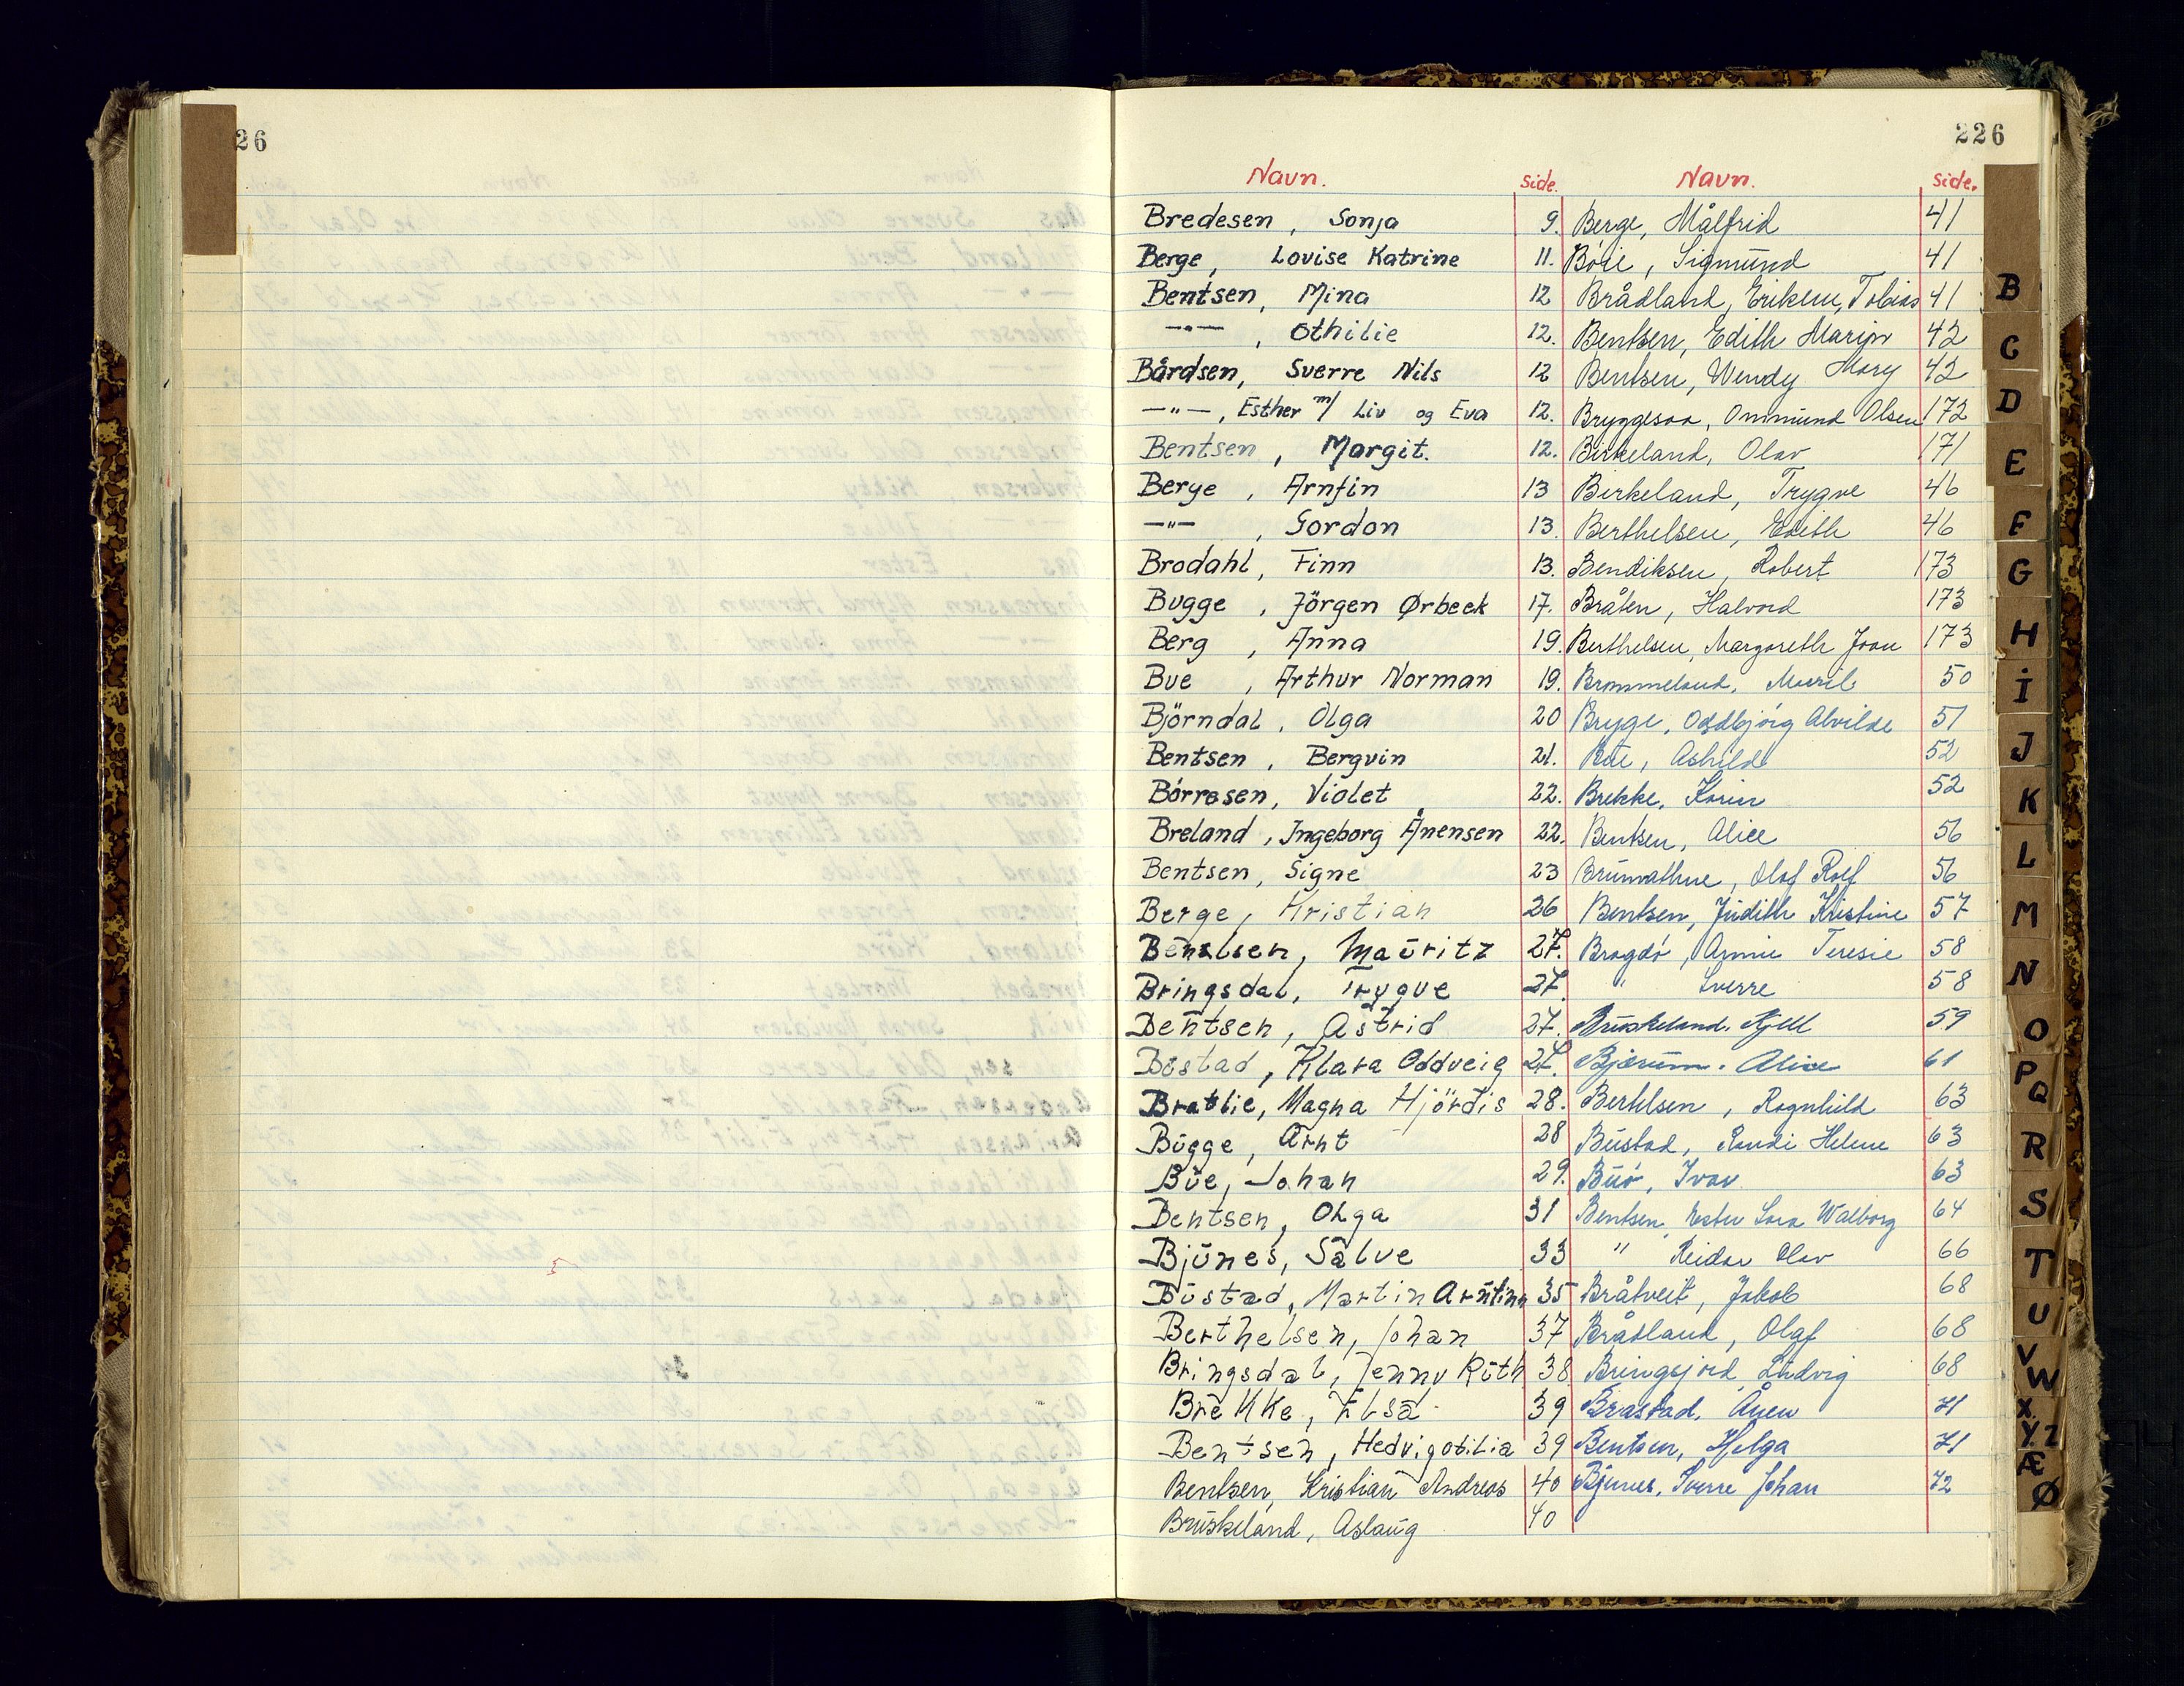 26
226
Navn. side. Navn. side.
Bredesen, Sonja 9. Berge, Målfrid 41
Berge, Lovise Katrine 11. Böie, Sigmund 41
Bentsen, Mina 12 Brådland, Eriksen, Tobias 41
—"—, Othilie 12. Bentsen, Edith Marion 42
Bårdsen, Sverre Nils 12 Bentsen, Wendy Mary 42
—"—, Esther m/ Liv og Eva 12. Bryggesaa, Ommund Olsen 172
Bentsen, Margit. 12. Birkeland, Olav 171
Berge, Arnfin 13 Birkeland, Trygve 46
—"—, Gordon 13. Berthelsen, Edith 46
Brodahl, Finn 13. Bendiksen, Robert 173
Bugge, Jörgen Ørbeck 17. Bråten, Halvord 173
Berg, Anna 19. Berthelsen, Margareth Joan 173
Bue, Arthur Norman 19. Brommeland, 50
Björndal, Olga 20 Brygge, Oddbjörg Alvilde 51
Bentsen, Bergvin 21. Böe, Ashild 52
Börresen, Violet 22. Brekke, Karin 52
Breland, Ingeborg Ånensen 22. Bentsen, Alice 56
Bentsen, Signe 23 Brunvathne, Olaf Rolf 56
Berge, Kristian 26 Bentsen, Judith Kristine 57
Bentsen, Mauritz 27. Bragdö, Annie Teresie 58
Bringsdal, Trygve 27. " Sverre 58
Bentsen, Astrid 27. Bruskeland, Kjell 59
Bustad, Klara Oddveig 27. Bjærum, Alice 61
Bratlie, Magna Hjördis 28. Bertelsen, Ragnhild 63
Bugge, Arnt 28 Bustad, Randi Helene 63
Bue, Johan 29. Buö, Ivar 63
Bentsen, Olga 31 Bentsen, Ester Sara Walborg 64
Bjunes, Salve 33 " Reidar Olav 66
Bustad, Martin Arntinn 35 Bråtveit, Jakob 68
Berthelsen, Johan 37 Brådland, Olaf 68
Bringsdal, Jenny Ruth 38 Bringsjord, Ludvig 68
Brekke, Elsa 39 Brastad, Ånen 71
Bentsen, Hedvig Otilia 39 Bentsen, Helga 71
Bentsen, Kristian Andreas 40 Bjunes, Sverre Johan 72
Bruskeland, Aslaug 40
B
C
D
E
F
G
H
I
J
K
L
M
N
O
P Q
R
S
T
U
V W
X
Y Z
Æ
Ø